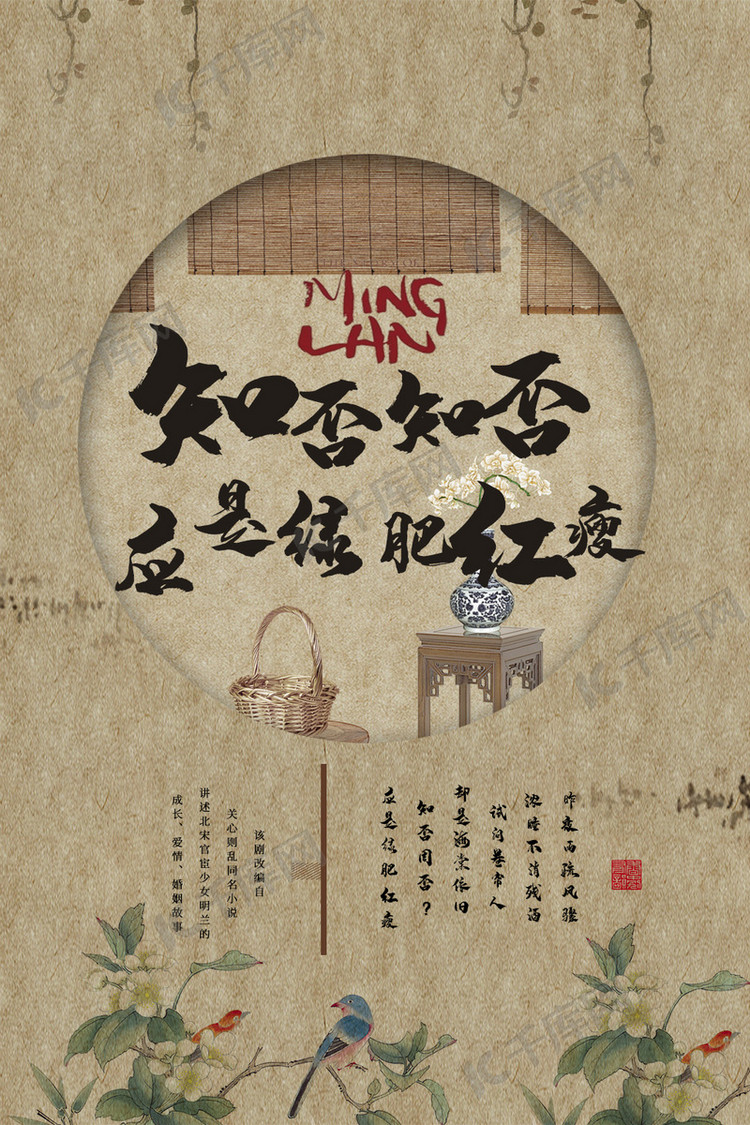 MING
LAN
知否知否
应是绿肥红瘦
昨夜雨疏风骤
浓睡不消残酒
试问卷帘人
却是海棠依旧
知否同否？
应是绿肥红瘦
该剧改编自
关心则乱同名小说
讲述北宋官宦少女明兰的
成长、爱情、婚姻故事
千库网